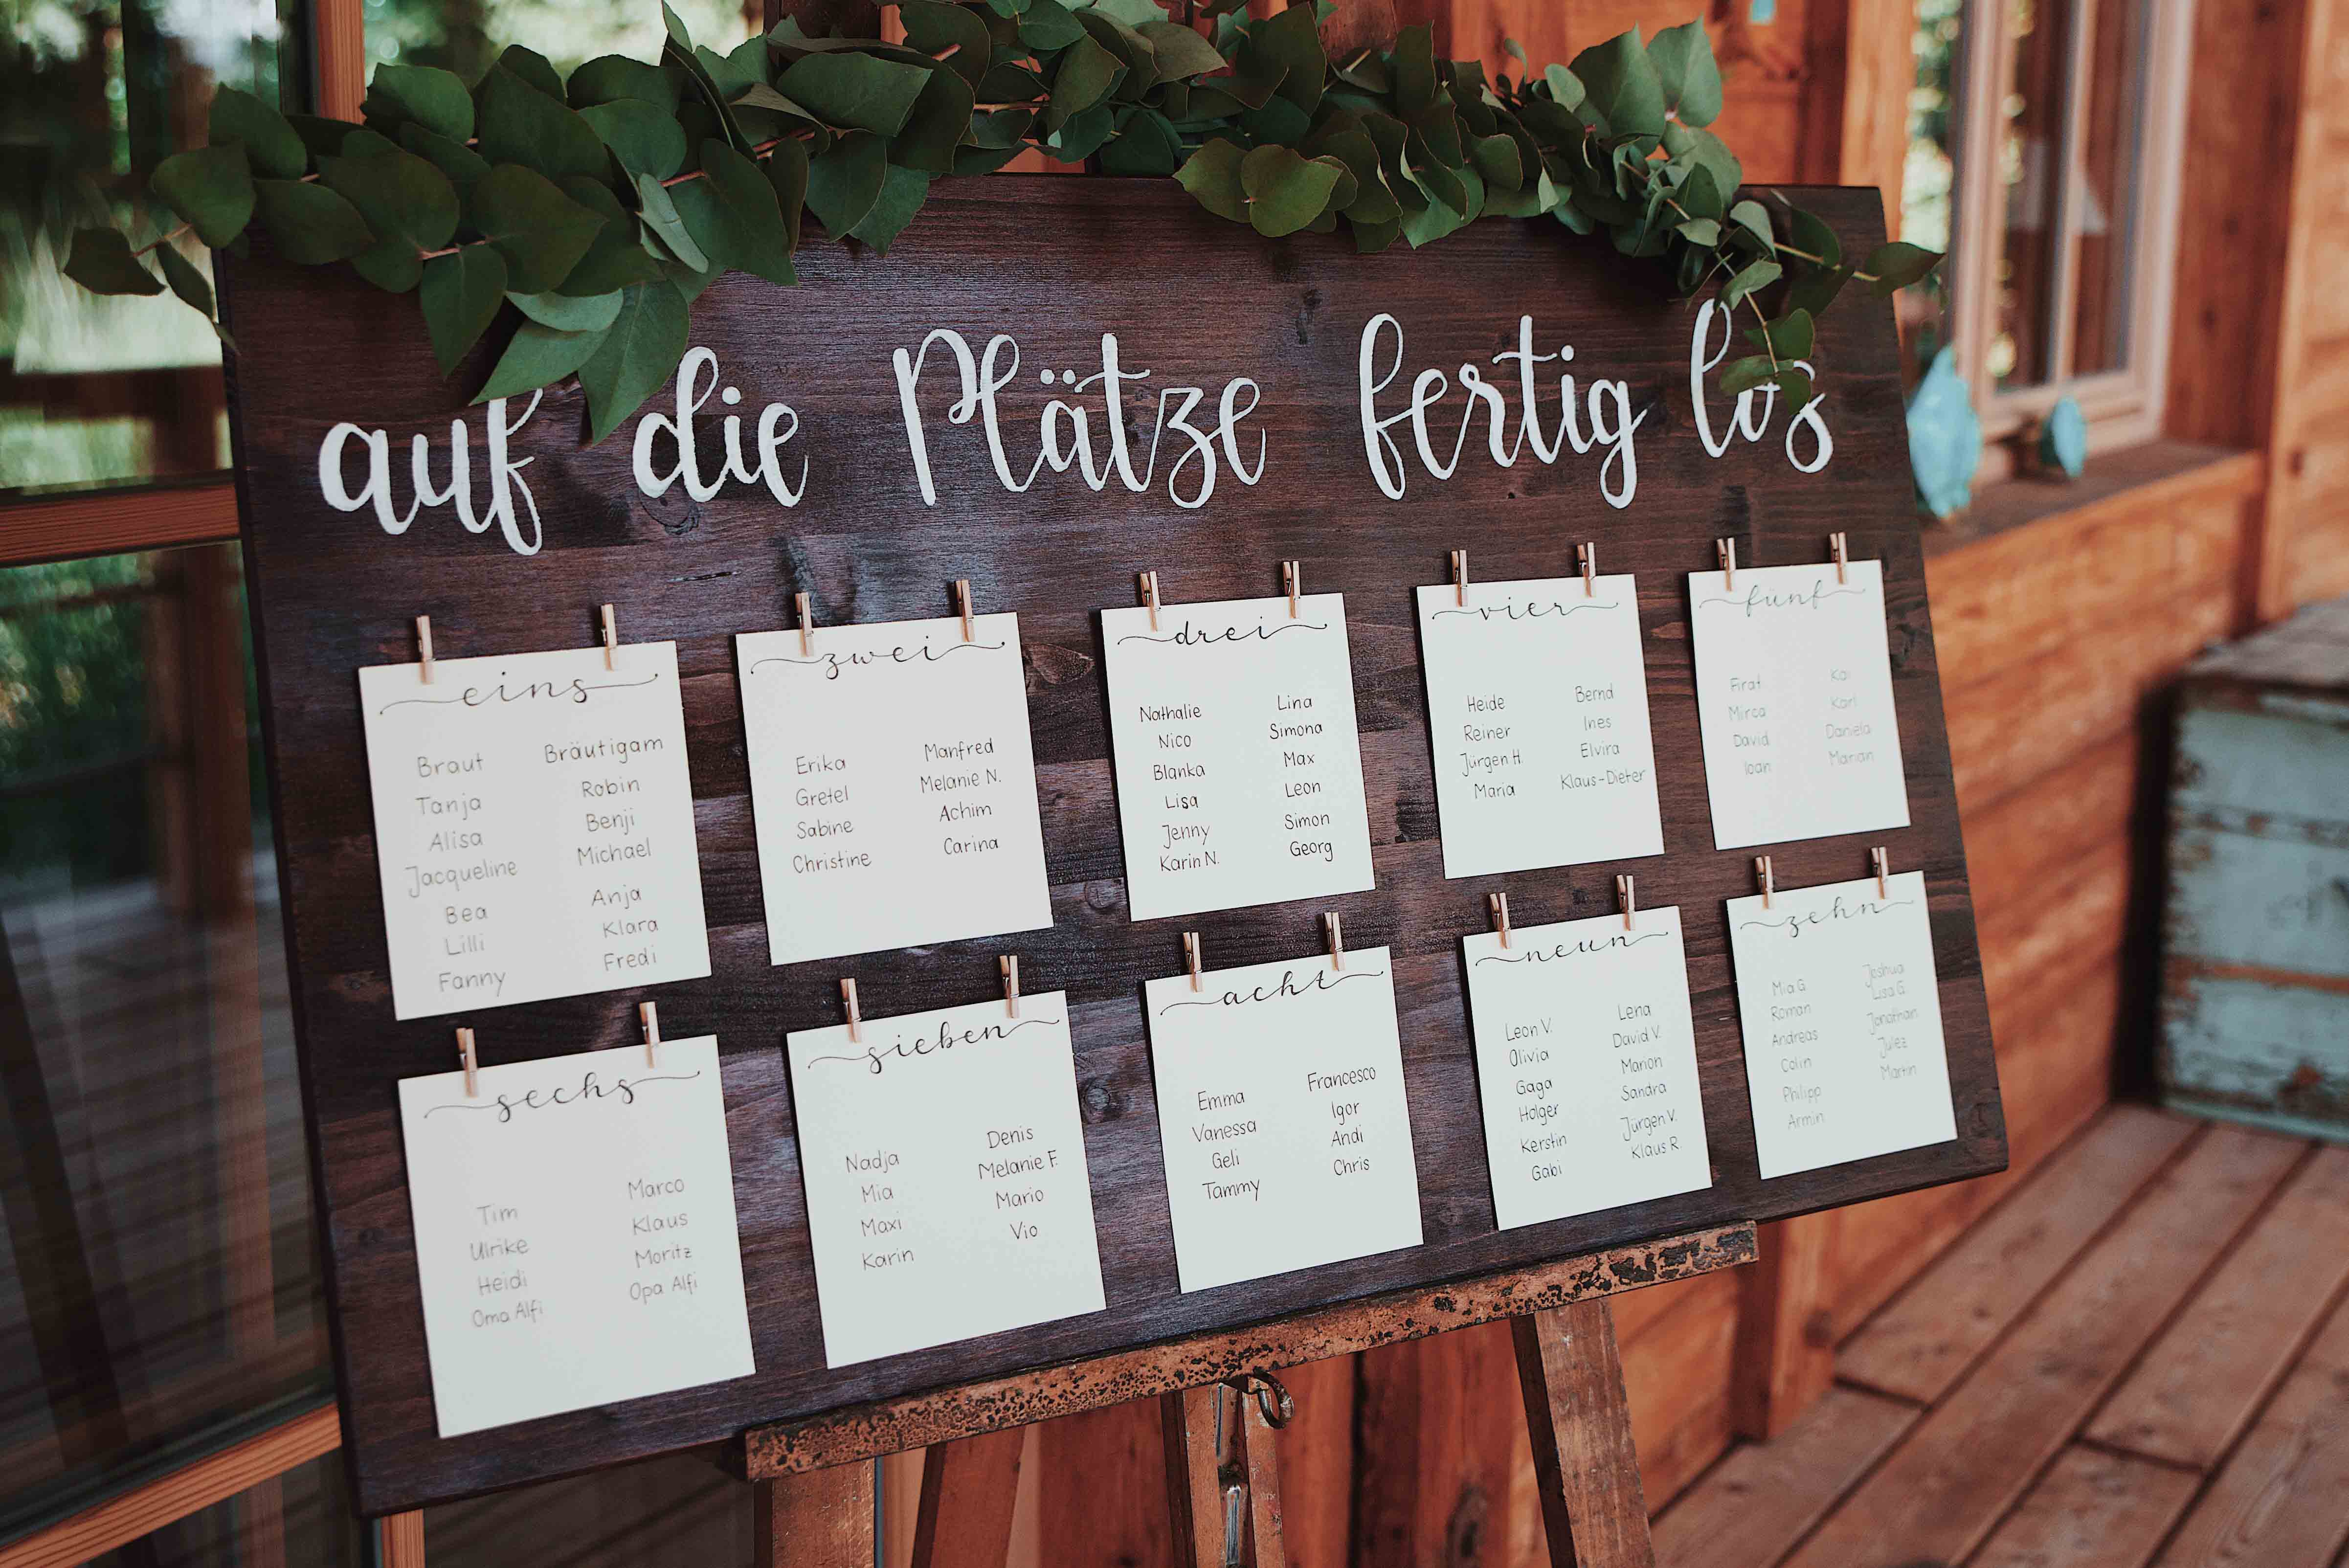 auf die Plätze fertig los
eins
Braut Bräutigam
Tanja Robin
Alisa Benji
Jacqueline Michael
Bea Anja
Lilli Klara
Fanny Fredi
zwei
Erika Manfred
Gretel Melanie N.
Sabine Achim
Christine Carina
drei
Nathalie Lina
Nico Simona
Blanka Max
Lisa Leon
Jenny Simon
Karin N. Georg
vier
Heide Bernd
Reiner Ines
Jürgen H. Elvira
Maria Klaus-Dieter
fünf
Firat Kai
Mirco Karl
David Daniela
Ioan Marian
sechs
Tim Marco
Ulrike Klaus
Heidi Moritz
Oma Alfi Opa Alfi
sieben
Nadja Denis
Mia Melanie F.
Maxi Mario
Karin Vio
acht
Emma Francesco
Vanessa Igor
Geli Andi
Tammy Chris
neun
Leon V. Lena
Olivia David V.
Gaga Marion
Holger Sandra
Kerstin Jürgen V.
Gabi Klaus R.
zehn
Mia G. Joshua
Roman Lisa G.
Andreas Jonathan
Colin Julez
Philipp Martin
Armin